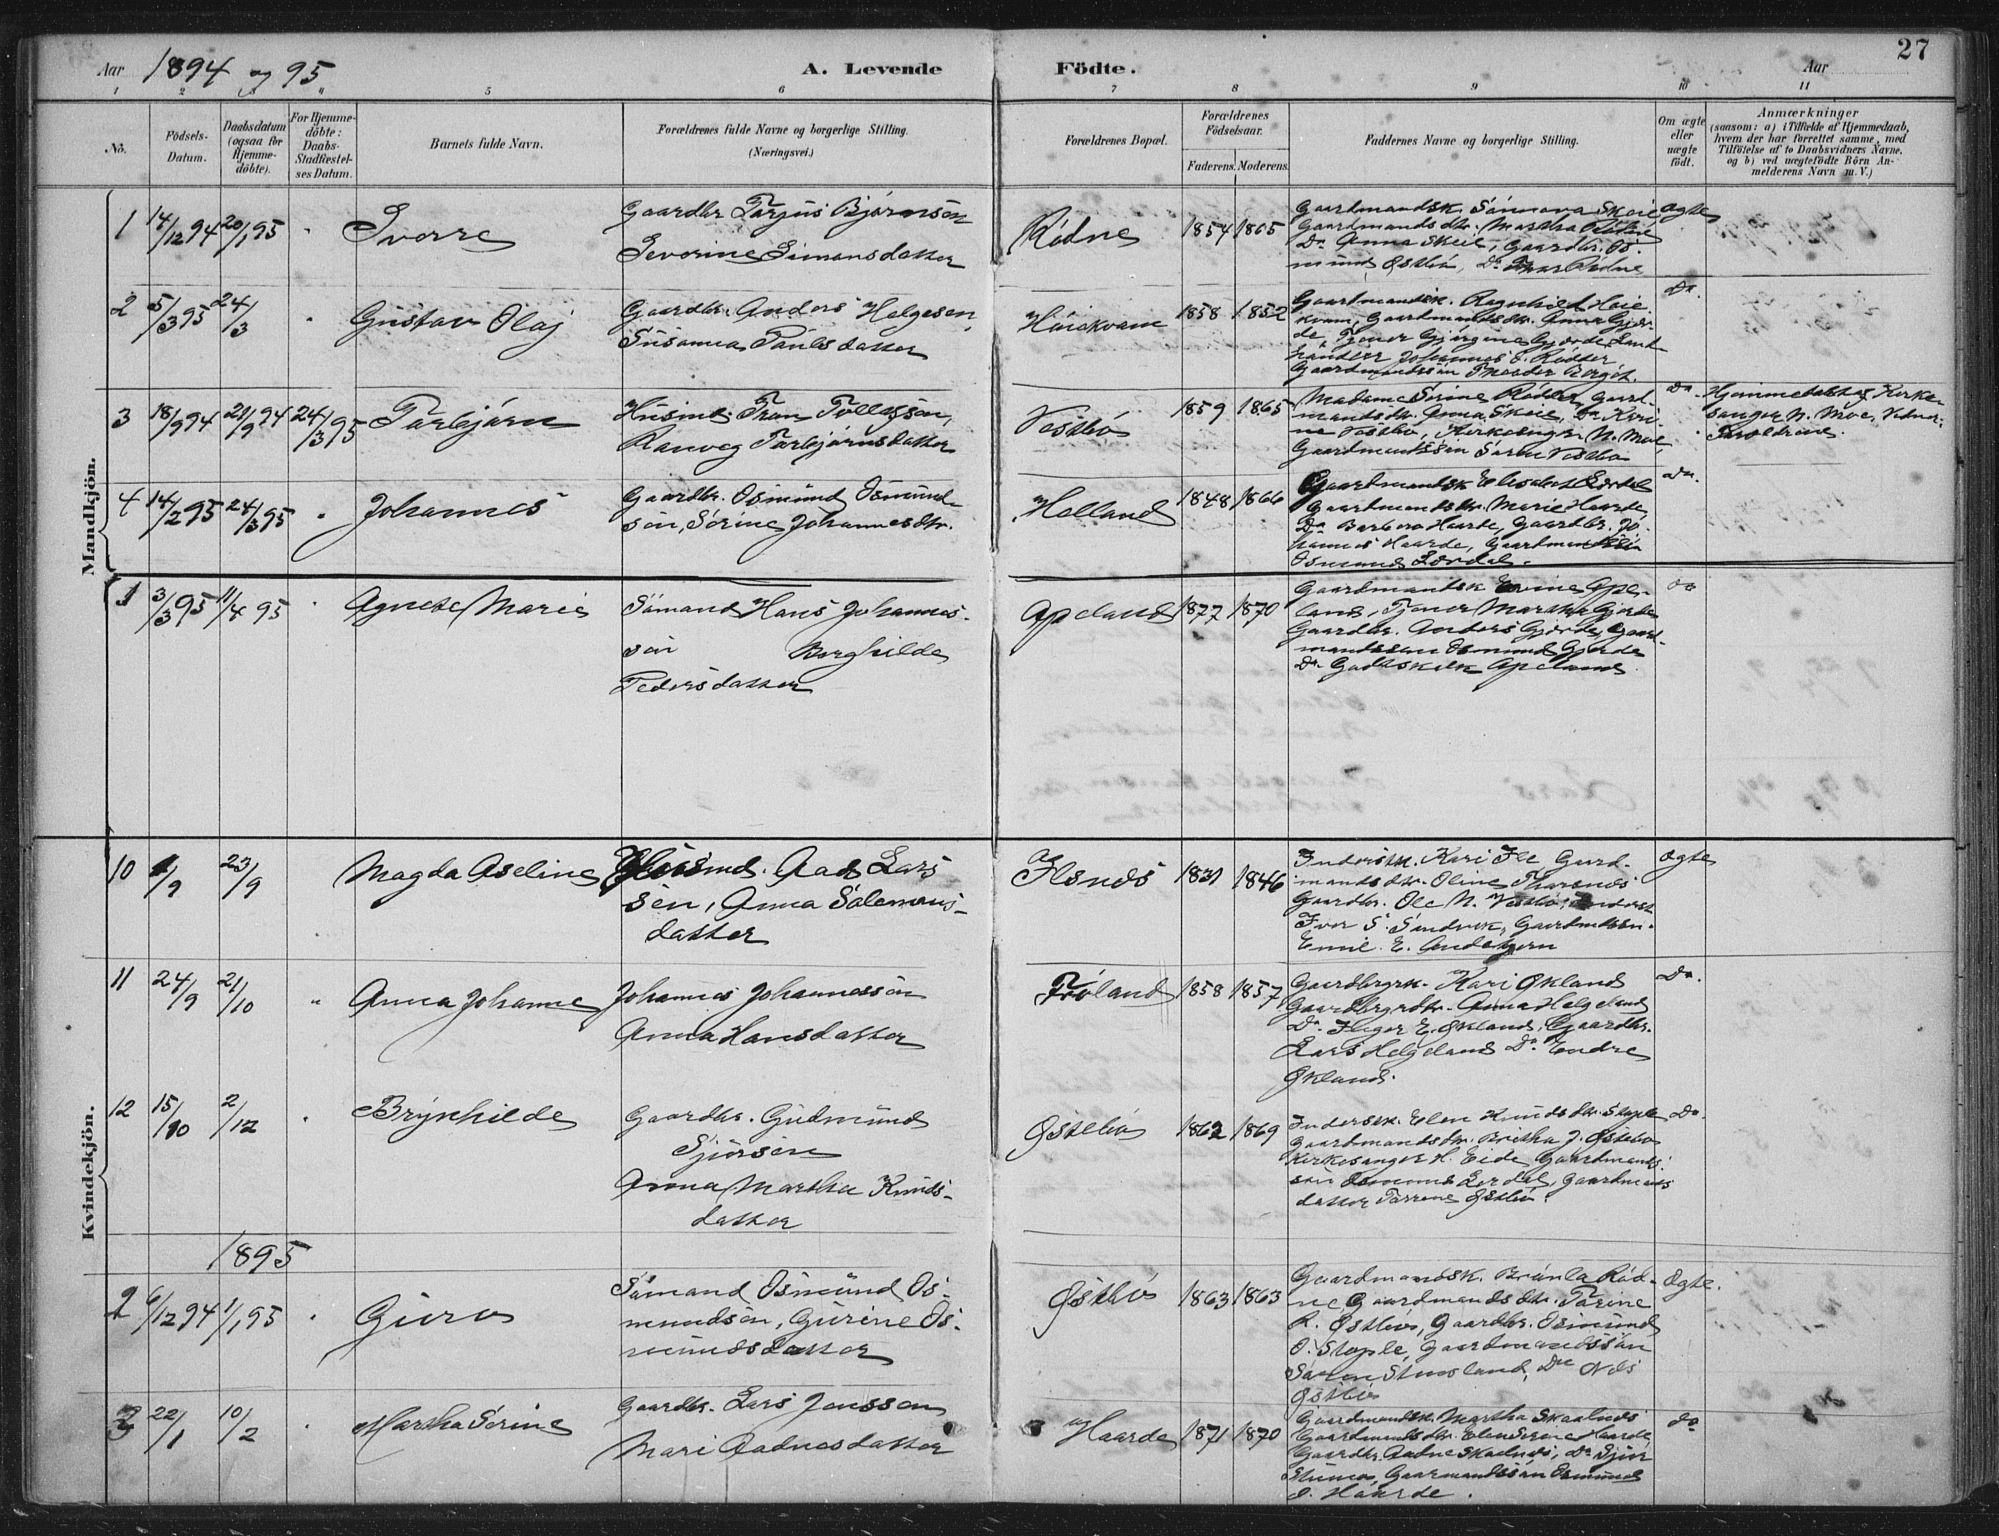 27
Aar 1894 og 95
A. Levende Födte.
Aar
1 2 3 4 5 6 7 8 9 10 11
No.
Födsels-Datum.
Daabsdatum (ogsaa for Hjemme-döbte).
For Hjemme-döbte: Daabs-Stadfæstel-ses Datum.
Barnets fulde Navn.
Forældrenes fulde Navne og borgerlige Stilling.
(Næringsvei.)
Forældrenes Bopæl.
Forældrenes Födselsaar.
Faderens. Moderens.
Faddernes Navne og borgerlige Stilling.
Om ægte eller uægte födt.
Anmærkninger
(saasom: a) i Tilfælde af Hjemmedaab,
hvem der har forrettet samme, med
Tilföielse af to Daabsvidners Navne,
og b) ved uægtefödte Börn An-
melderens Navn m. V.)
Mandkjön.
1 14/12 94 20/1 95 " Sverre
Gaardbr. Tarjus Björnsön
Severine Simonsdatter
Rödne 1854 1865
Gaardmandsk. Skeie
Gaardmandsdtr. Martha
Do Anna Skeie, Gaardbr. Os-
mund Östbö, Do Rödne
ægte
2 5/3 95 24/3 " Gustav Olaj
Gaardbr. Anders Helgesen,
Susanna Paulsdatter
1858 1852
Gaardmandsk. Ragnhild Hoie-
kvam, Gaardmandsdtr. Anna Gjer-
de, Tjener Gjerde, Land-
handler Johannes E. Rödder
Gaardmandssön
Do.
3 18/9 94 21/9 94 24/3 95 Torbjörn
Husmd. Tron Tollefssön,
Ranveg Torbjörnsdatter
Vestbö 1859 1865
Madame Serine Rödder, Gaard-
mandsdtr. Anna Skeie, Do Kari-
ne Vestbö, Kirkesanger N. Moe,
Gaardmandssön Sören Vestbö
Do
Hjemmedøbt af Kirke-
sanger N. Moe, Vidner:
Forældrene.
4 14/2 95 24/3 95 " Johannes
Gaardbr. Osmund Osmund-
sön, Serine Johannesdtr.
Helland 1848 1866
Gaardmandsk. Elisabet Lerdal
Gaardmandsdtr. Marie Haarde,
Do Barbara Haarde, Gaardbr. Jo-
hannes Haarde, Gaardmandssön
Osmund Lerdal.
Do.
Kvindekjön.
1 3/3 95 11/4 95 " Agnete Marie
Sömand Hans Johannes-
sön Borghilde
Pedersdatter
Apeland 1877 1870
Gaardmandsk. Ape-
land, Tjener Martha Gjerde
Gaardbr. Anders Gjerde, Gaard-
mandssön Osmund Gjerde
Do Godtskalk Apeland
do
10 1/9 23/9 Magda Aseline
Husmd. Aad Lars
sön, Anna Salemons-
datter
Ilsnes 1831 1846
Inderstk. Kari Ile, Gard-
mandsdtr. Oline
Gaardbr. Ole N. Vestbö, Inderst
Ivor S. Sandvik, Gaardmdssön.
Emil E.
ægte
11 24/9 21/10 " Anna Johanne
Johannes Johannessön
Anna Hansdatter
Fröland 1858 1857
Gaardbrgrk. Kari Økland
Gaardbrgrdtr. Anna Helgeland
Do E. Økland, Gaardbr.
Lars Helgeland Do Endre
Økland.
Do.
12 15/10 2/12 " Brynhilde
Gaardbr. Gudmund
Sjursön
Anna Martha Knuds-
datter
Østebö 1862 1869
Inderstk. Elen Knudsdtr. Stople
Gaardmandsdtr. Britha J. Østebö
Kirkesanger H. Eide, Gaardmands-
sön Osmund Lerdal, Gaardmands
datter Østbö.
Do.
1895
2 6/12 94 1/1 95 " Guro
Sömand Osmund Os-
mundsön, Gurine Os-
mundsdatter
Østbö 1863 1863
Gaardmandsk. Röd-
ne, Gaardmandsdtr. Tarine
R. Østbö, Gaardbr. Osmund
O. Stople, Gaardmandssön
Sören Do Nils
Østbö
ægte.
3 22/1 10/2 " Martha Serine
Gaardbr. Lars Jonssön
Mari Aadnesdatter
Haarde 1871 1870
Gaardmandsk. Martha Skaalnes
Gaardmandsdtr. Elen Serene Haarde
Gaardbr. Aadne Skaalnes, Do Sjur
Gaarmandssön Osmund
O. Haarde.
do